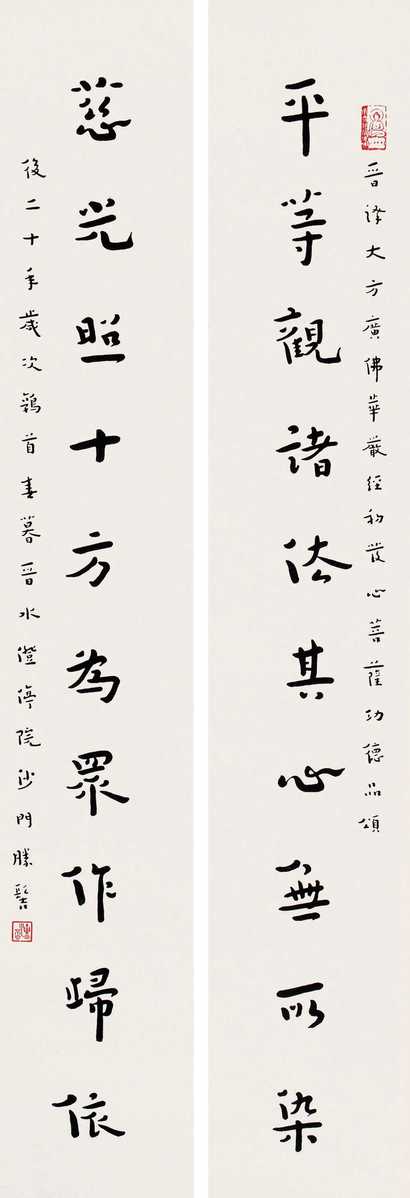 晉譯大方廣佛華嚴經初發心菩薩功德品頌
平等觀諸法其心無所染
慈光照十方為眾作歸依
後二十年歲次鶉首春暮晉水澄渟院沙門勝髻